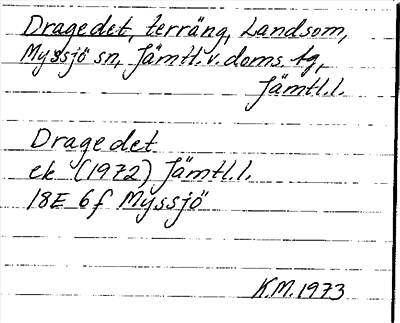 Dragedet, terräng, Landsom,
Myssjö sn, Jämtl. v. doms. tg,
Jämtl.l.
Dragedet
ek (1972) Jämtl.l.
18E 6f Myssjö
K.M. 1973